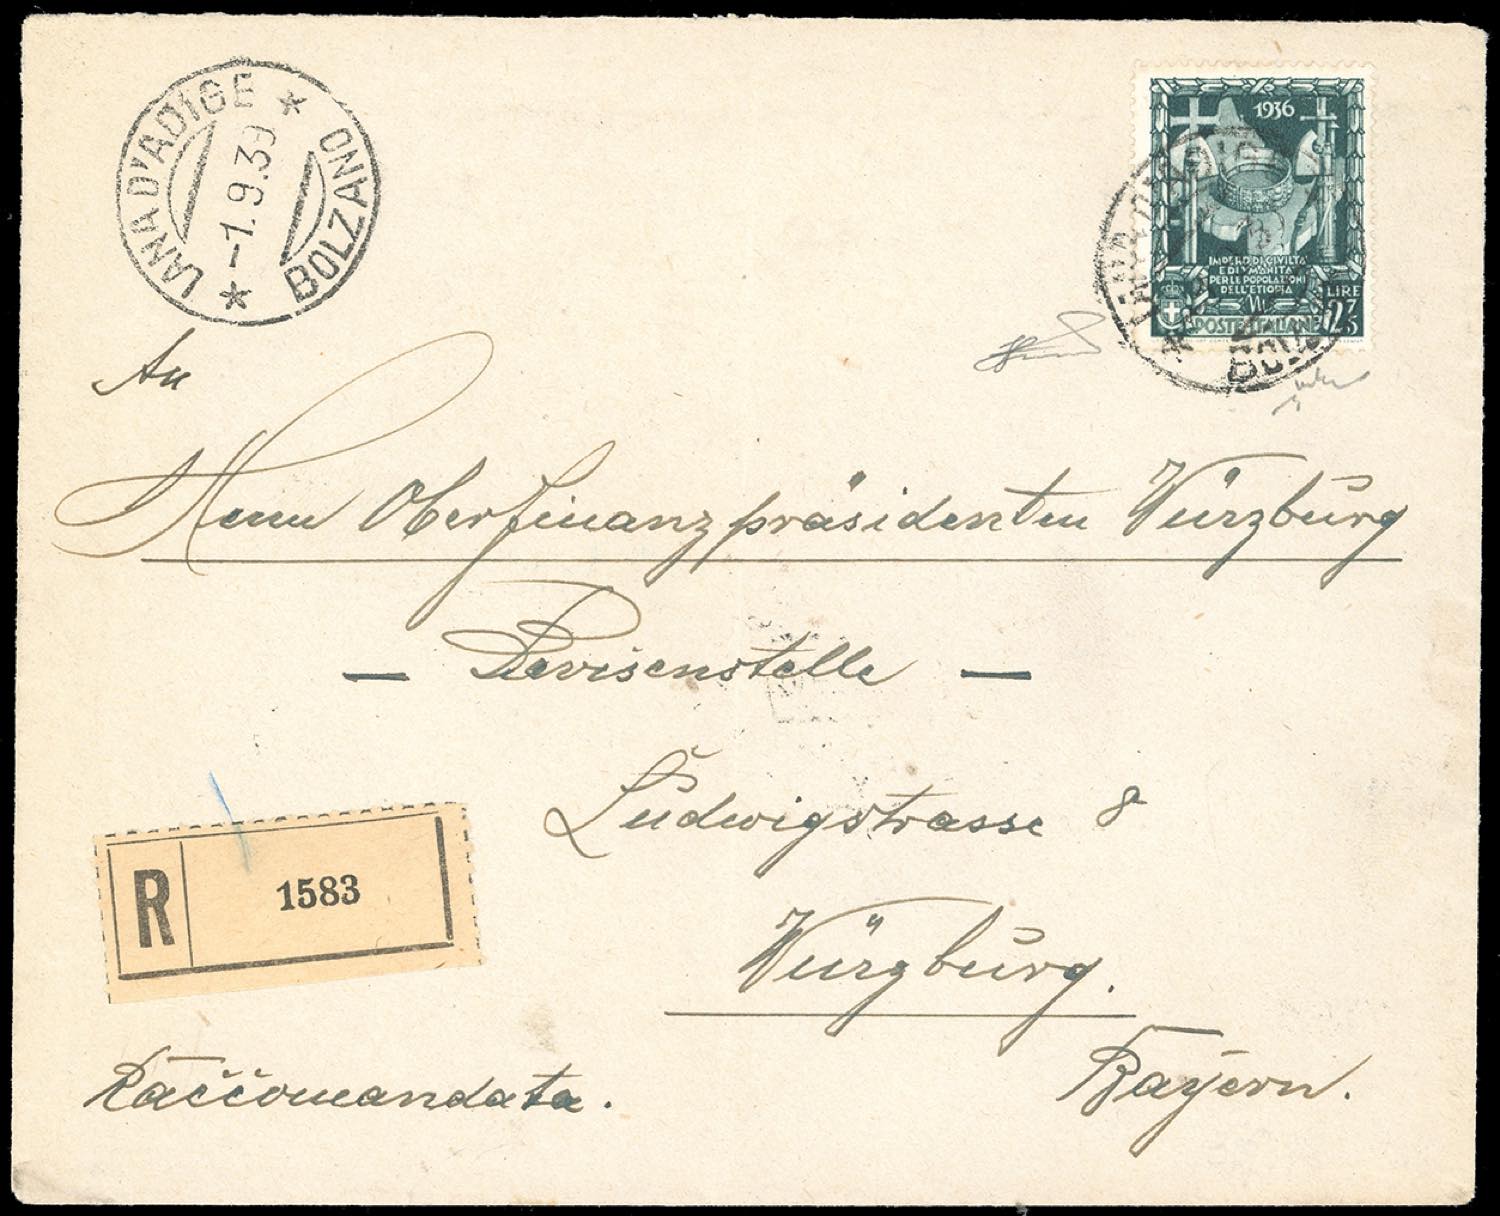 LANA D'ADIGE
-1.9.39
BOLZANO
1936
IMPERO DI CIVILTA
E DI VMANITA
PER LE POPOLAZIONI
DELL'ETIOPIA
LIRE
2,75
POSTE ITALIANE
An
Herrn Oberfinanzpräsidenten Würzburg
— Devisenstelle —
Ludwigstrasse 8
Würzburg.
Bayern.
R 1583
Raccomandata.